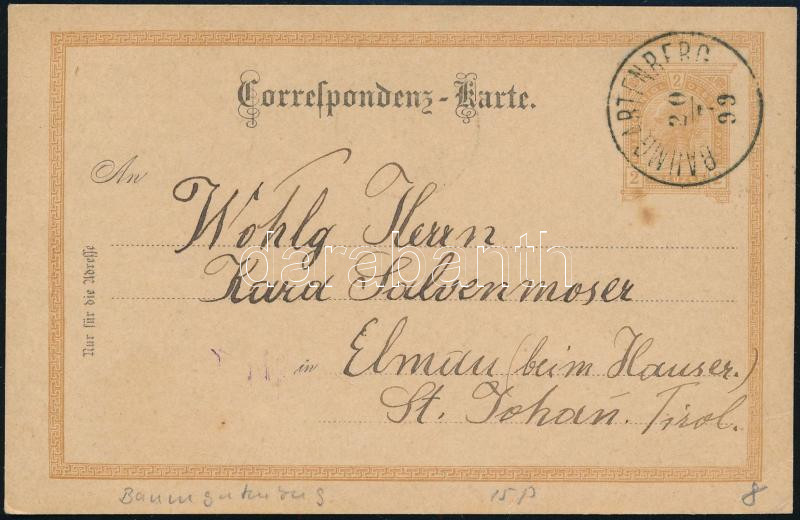 Correspondenz-Karte.
BAUMGARTENBERG
20
7
99
2
2 2
An
Wohlg Herrn
Kara Salvenmoser
in Elmau (beim Hauser.)
St. Johañ. Tirol.
Nur für die Adresse
darabanth
Baumgartenberg.
15 P
8